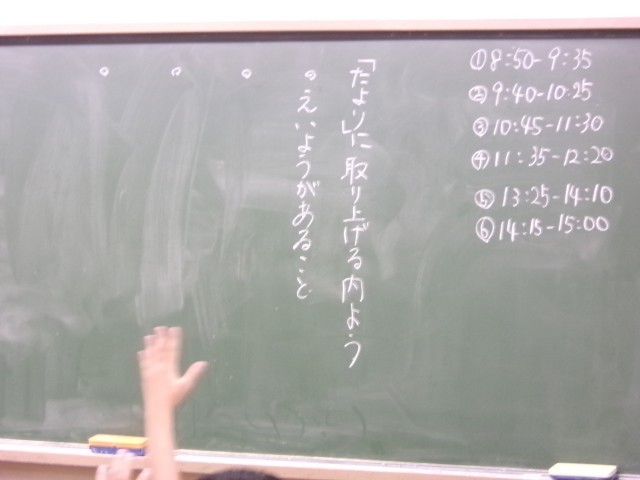 「たより」に取り上げる内よう
。えいようがあること
。
。
。
①8:50-9:35
②9:40-10:25
③10:45-11:30
④11:35-12:20
⑤13:25-14:10
⑥14:15-15:00